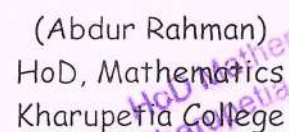 (Abdur Rahman)
HoD, Mathematics
Kharupetia College
HoD Mathe